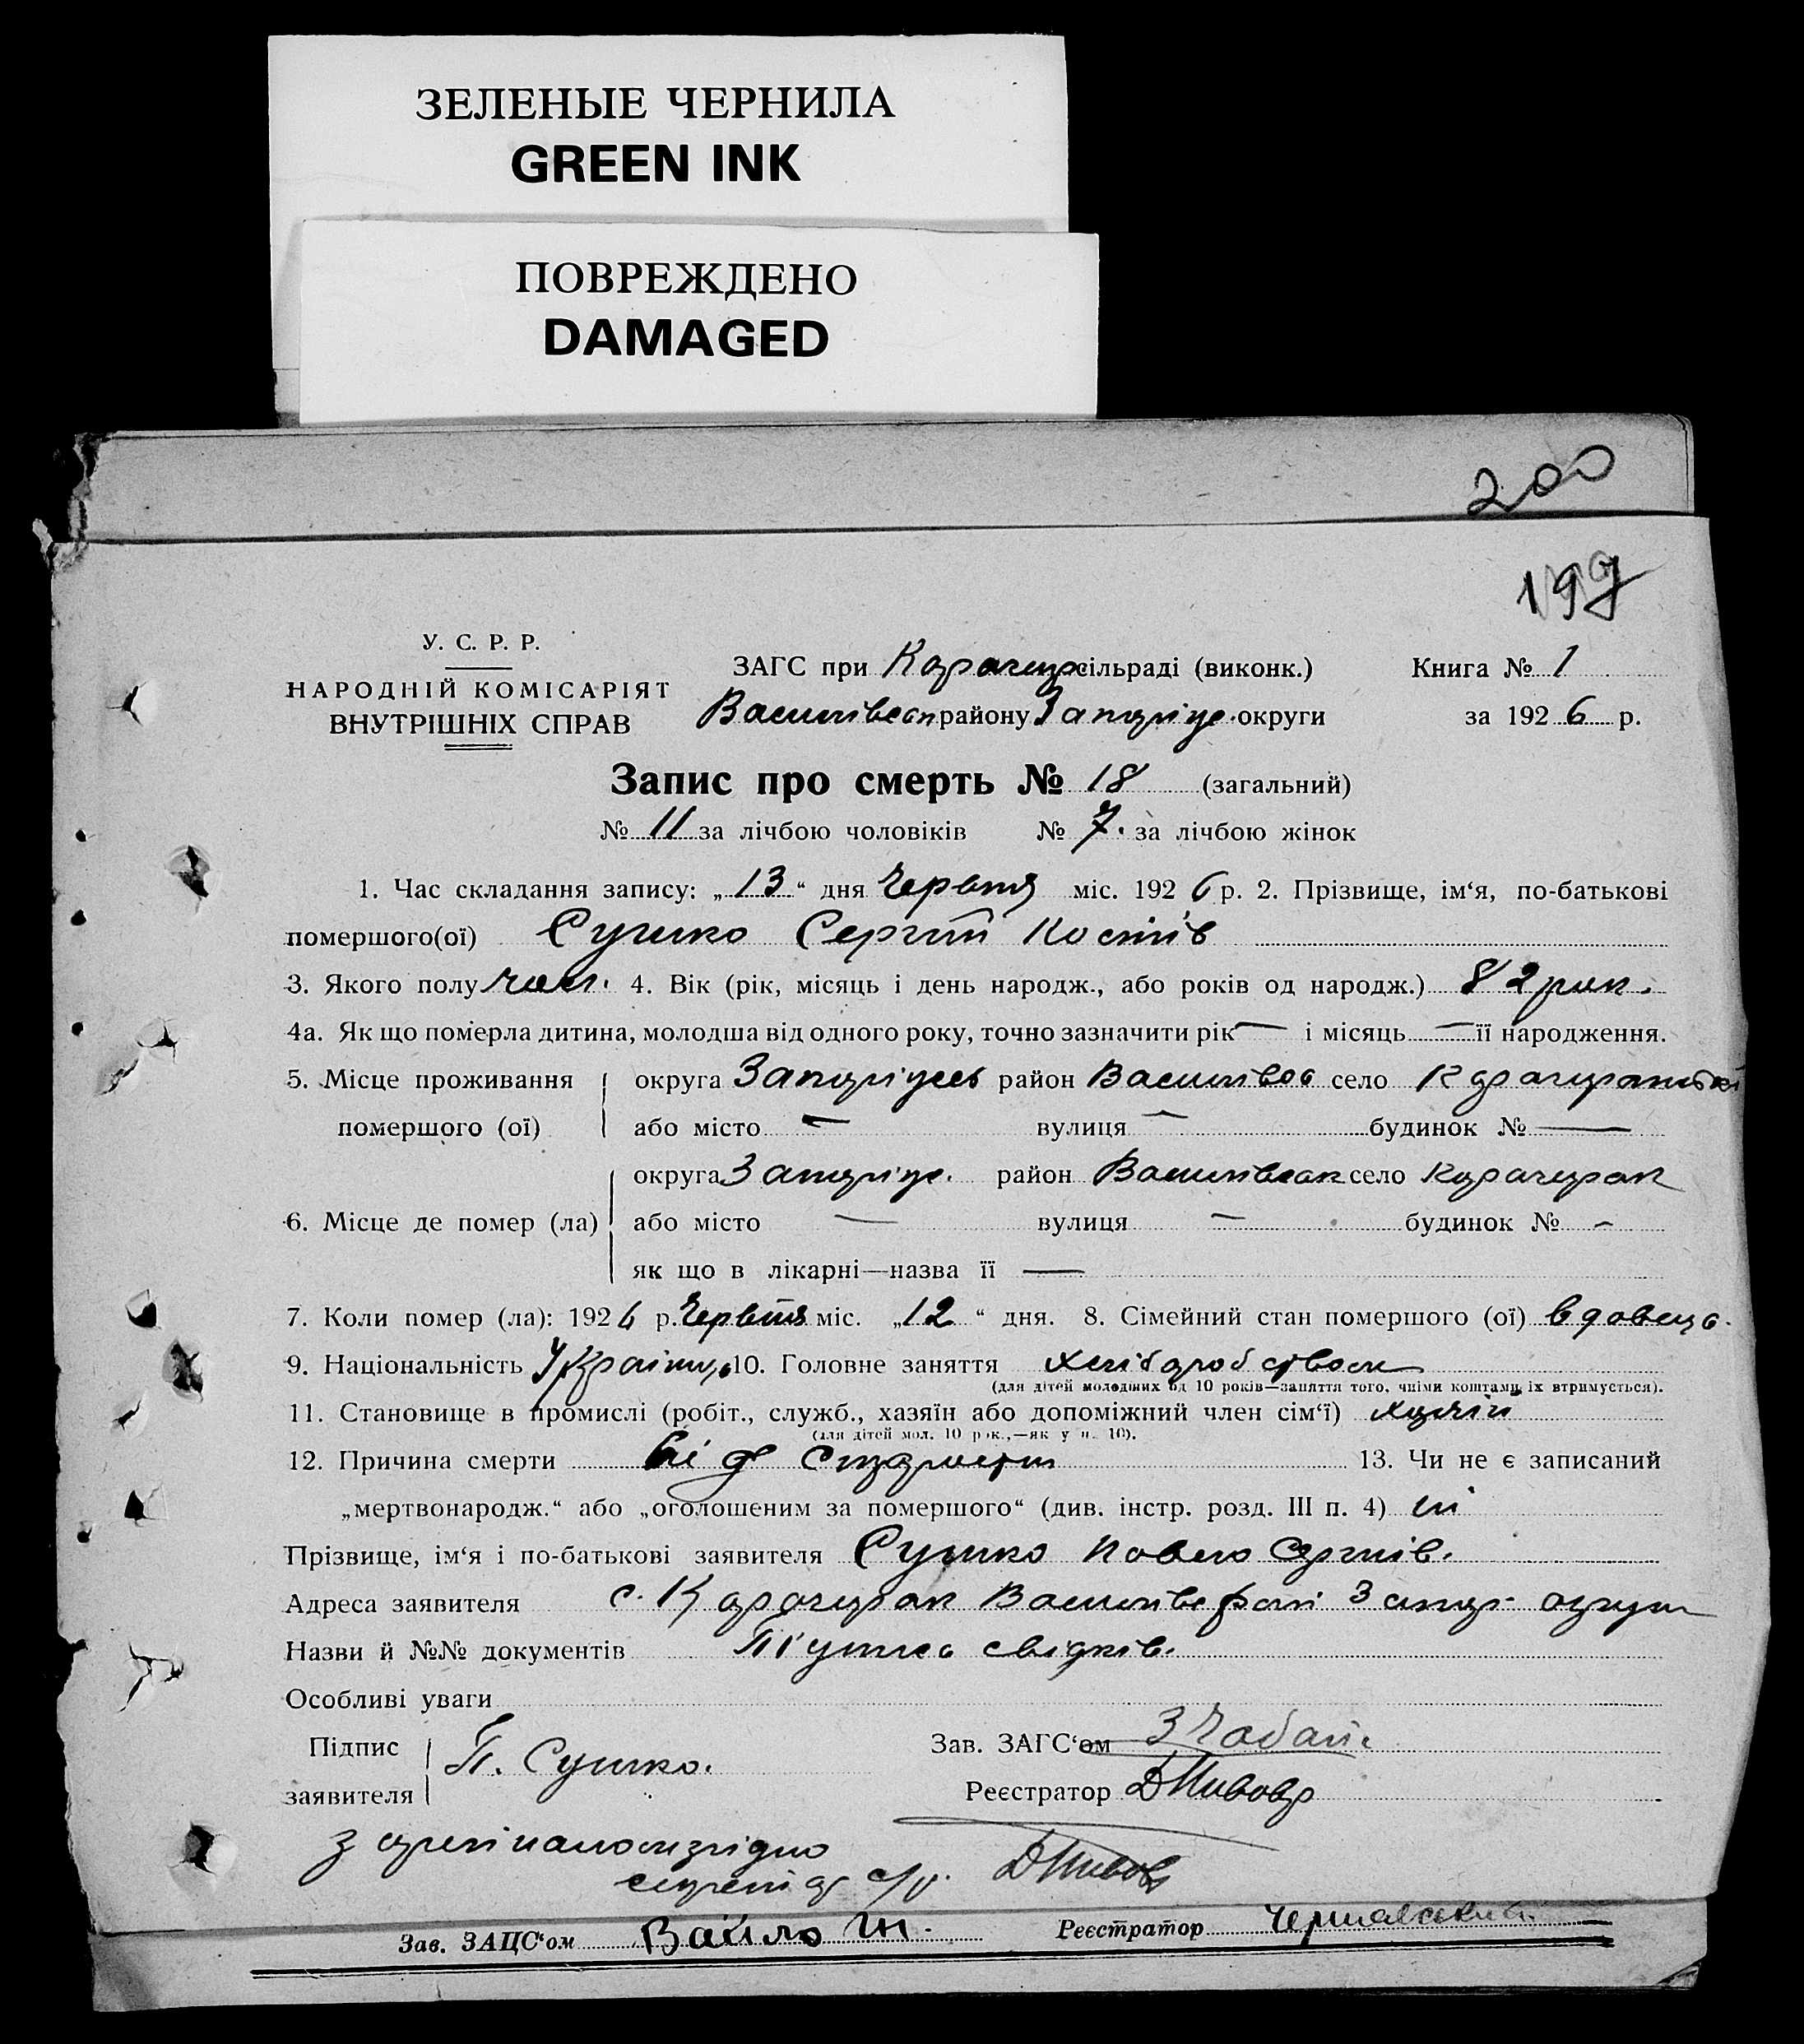 ЗЕЛЕНЫЕ ЧЕРНИЛА
GREEN INK
ПОВРЕЖДЕНО
DAMAGED
200
199
У. С. Р. Р.
НАРОДНІЙ КОМІСАРІЯТ
ВНУТРІШНІХ СПРАВ
ЗАГС при Карачекр сільраді (виконк.) Книга № 1
Василівськ району Запоріже. округи за 1926 р.
Запис про смерть № 18 (загальний)
№ 11 за лічбою чоловіків № 7. за лічбою жінок
1. Час складання запису: „13“ дня Червня міс. 1926 р. 2. Прізвище, ім‘я, по-батькові
помершого(ої) Сушко Сергій Костів
3. Якого полу чол. 4. Вік (рік, місяць і день народж., або років од народж.) 82 рок.
4а. Як що померла дитина, молодша від одного року, точно зазначити рік — і місяць — її народження.
5. Місце проживання округа район село
помершого (ої) або місто — вулиця — будинок № —
округа район Василівськ село Карачекрак
6. Місце де помер (ла) або місто — вулиця — будинок № -
як що в лікарні—назва її —
7. Коли помер (ла): 1926 р. Червня міс. „12“ дня. 8. Сімейний стан помершого (ої) вдовець.
9. Національність Україниць 10. Головне заняття хліборобством
(для дітей молодших од 10 років—заняття того, чиїми коштами їх втримується).
11. Становище в промислі (робіт., служб., хазяїн або допоміжний член сім‘ї) хазяїн
(для дітей мол. 10 рок.,—як у п. 10).
12. Причина смерти від старости 13. Чи не є записаний
„мертвонародж.“ або „оголошеним за помершого“ (див. інстр. розд. III п. 4) ні
Прізвище, ім‘я і по-батькові заявителя Сушко Павло Сергіїв.
Адреса заявителя с. Карачекрак
Назви й №№ документів свідків.
Особливі уваги
Підпис Зав. ЗАГС‘ом З Чабан
П. Сушко.
заявителя Реєстратор ДПивов
з оригіналом згідно
секретар с/р. ДПивов
Зав. ЗАЦС‘ом Вайло Реєстратор Чернявський